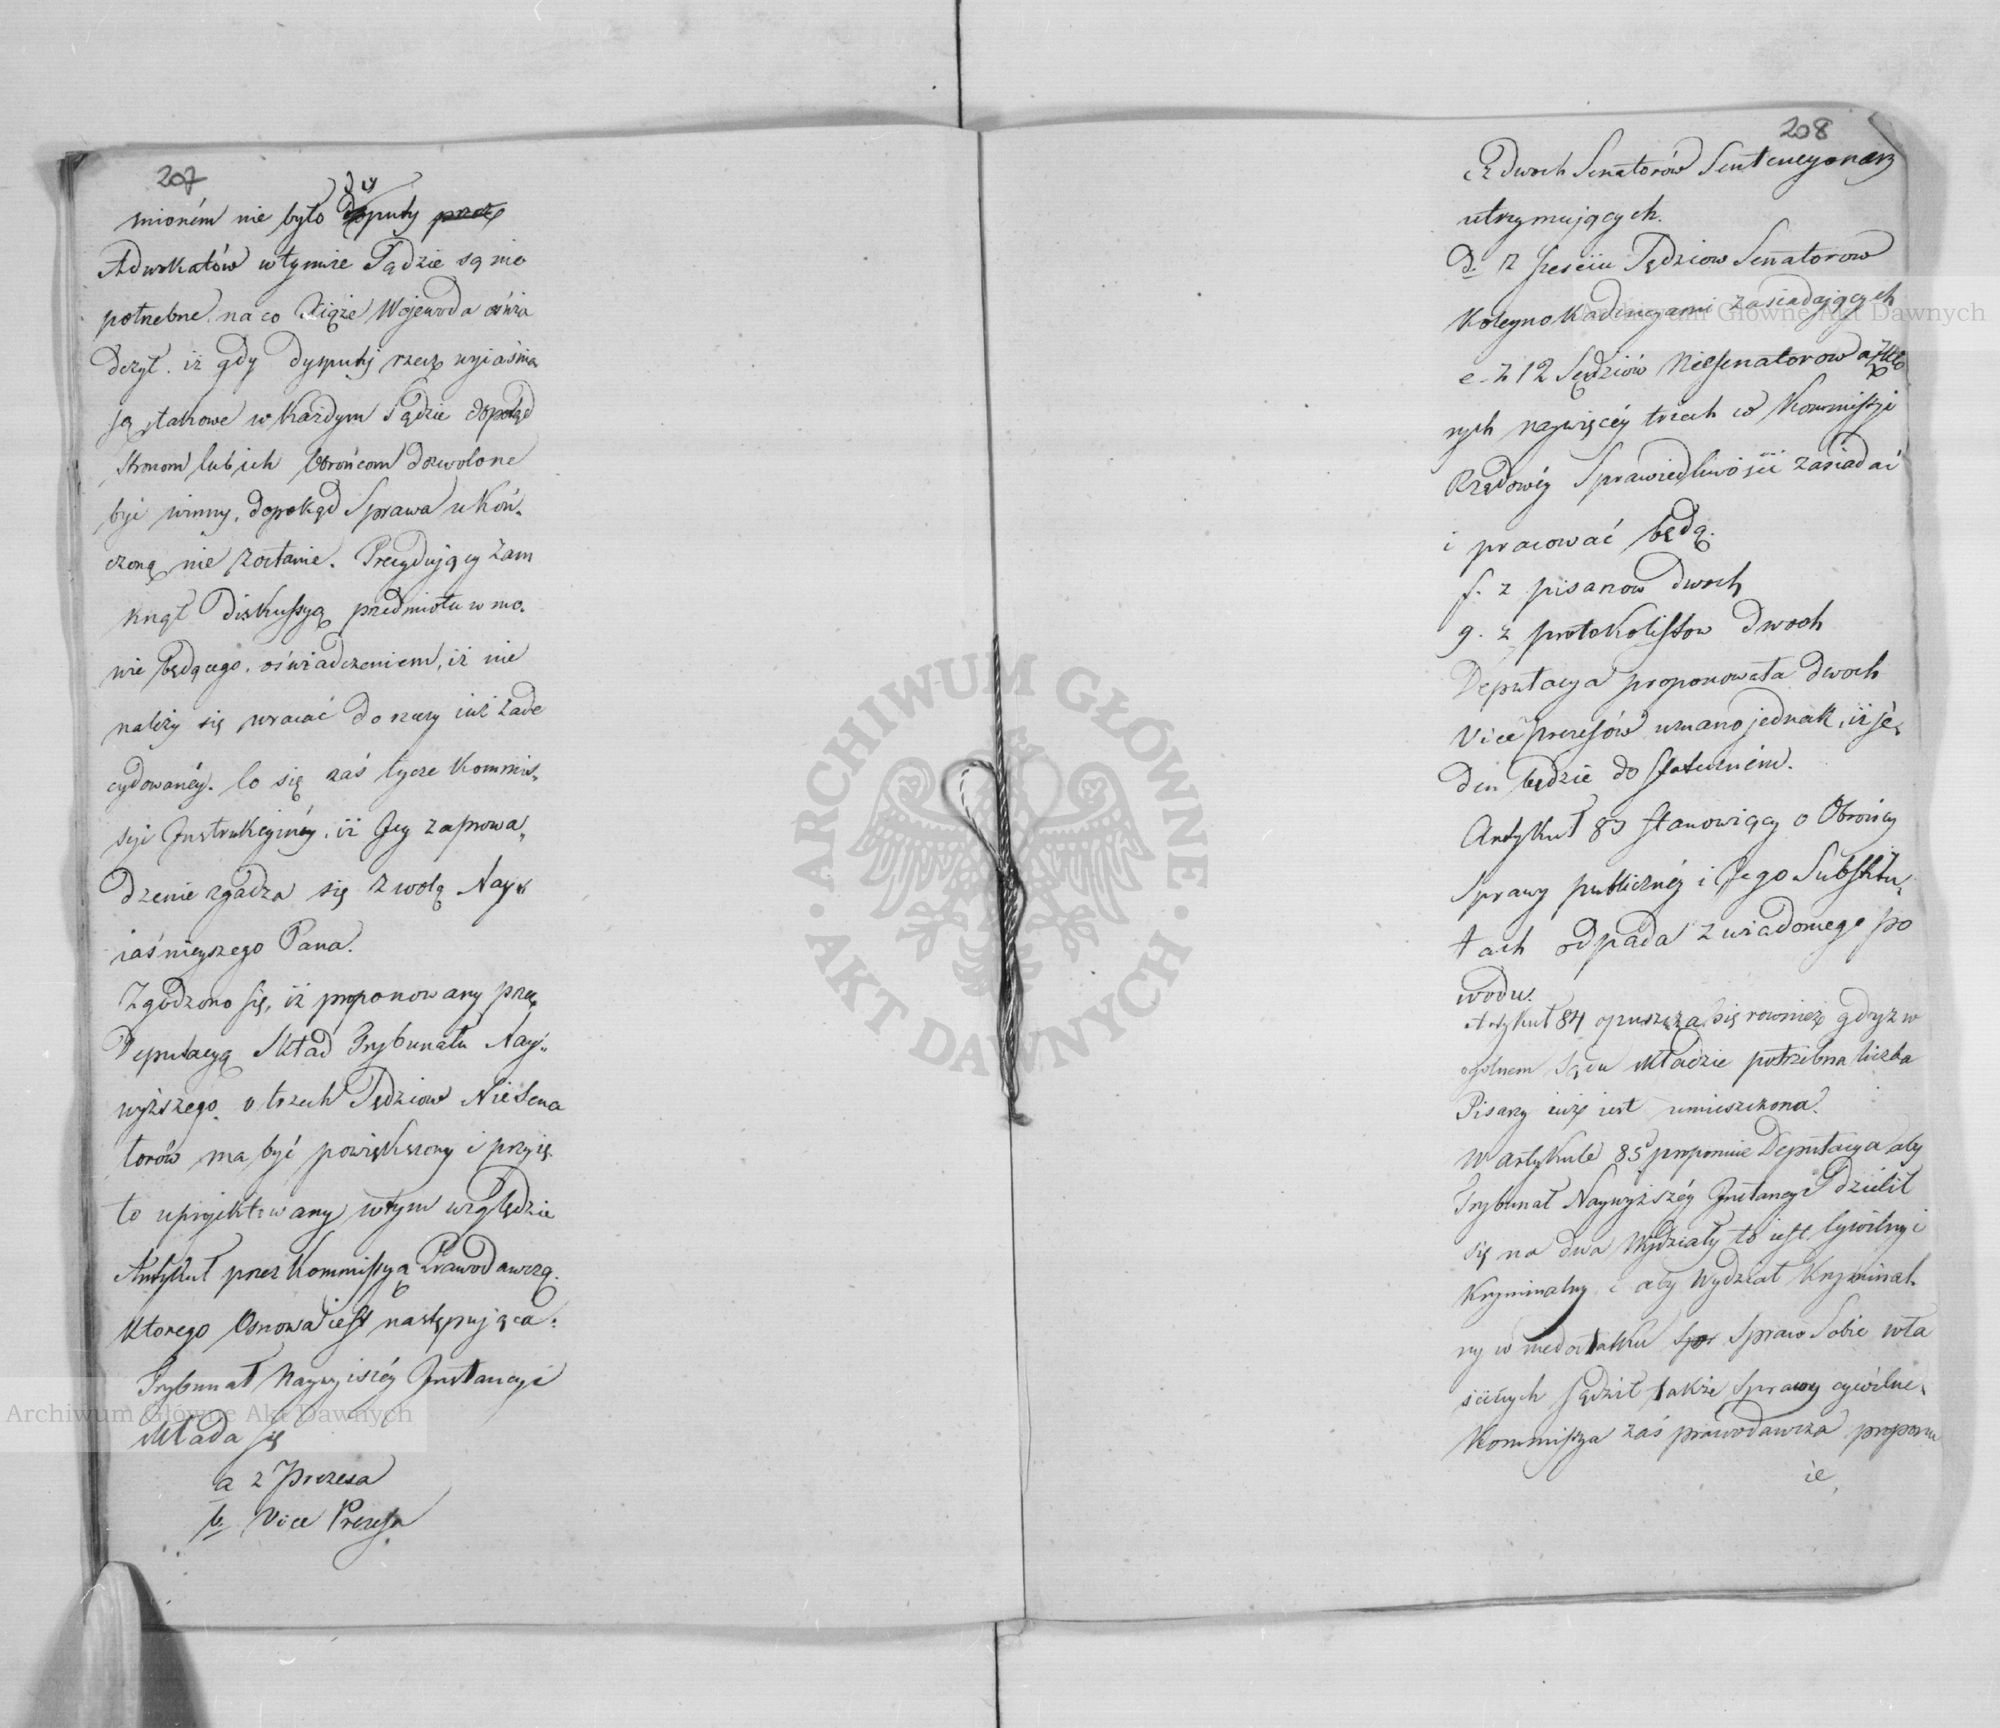 207
mioném nie było dysputy prze
Adwokatów w tymże Sądzie są nie
potrzebne. na co Xiąże Wojewoda oświa
dczył. iż gdy dysputy rzecz wyiaśnia
ją, takowe w każdym Sądzie dopokąd
Stronom lub ich Obrońcom dozwolone
być winny, dopokąd Sprawa ukoń„
czoną nie zostanie. Prezydujący zam
knął Diskussyą przedmiotu w mo„
wie będącego, oświadczeniem, iż nie
należy się wracać do rzeczy iuż zade
cydowanéy. Co się zaś tycze Kommis„
syi Instrukcyinéy, iż Jey zaprowa„
dzenie zgadza się z wolą Nay„
iaśnieyszego Pana.
Zgodzono się, iż proponowany przez
Deputacyą Skład Trybunału Nay„
wyższego o trzech Sędziow Nie Sena
torów ma być powiększony i przyię„
to uprojektowany w tym względzie
Artykuł przez Kommissyą Prawodawczą.
Ktorego Osnowa iest następująca:
Trybunał Naywyiszéy Instancyi
składa się
a z Prezesa
b. Vice Prezesa
208
C z dwoch Senatorów Sentencyonarz
utrzymujących.
d. z sześciu Sędziow Senatorow
Koleyno Kadencyami zasiadających
e. z 12 Sędziów Niesenatorow a z któ
rych naywięcéy trzech w Kommissyi
Rządowéy Sprawiedliwości zasiadać
i pracować będą.
f. z pisarzow dwoch
g. z protokolistow dwoch
Deputacya proponowała dwoch
Vice Prezesów uznano jednak, iż je„
den będzie dostatecznem.
Artykuł 83 stanowiący o Obrońcy
Sprawy publicznéy i Jego Substytu„
tach odpada z wiadomego po
wodu.
Artykuł 84 opuszcza się rownież gdyż w
ogolnem Sądu składzie potrzebna liczba
Pisarzy iuż iest umieszczona.
W artykule 85 proponuie Deputacya aby
Trybunał Naywyższéy Instancyi dzielił
się na dwa Wydziały to iest Cywilny i
Kryminalny i aby Wydział Kryminal„
ny w niedostatku Spr Spraw Sobie wła
ściwych sądził także Sprawy cywilne.
Kommissya zaś prawodawcza proponu
ie,
ARCHIWUM GŁÓWNE
AKT DAWNYCH
Archiwum Główne Akt Dawnych
Archiwum Główne Akt Dawnych